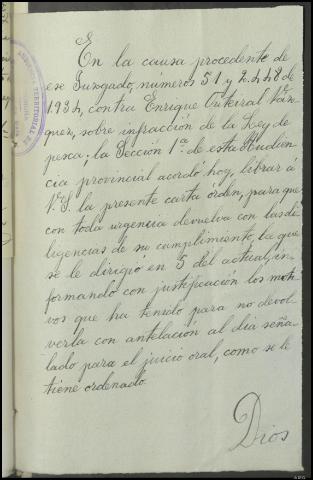 En la causa procedente de
ese Juzgado, números 51 y 2.448 de
1934, contra Enrique Outeiral Váz-
quez, sobre infracción de la Ley de
pesca; la Sección 1ª de esta Audien-
cia provincial acordó hoy, librar á
V.S. la presente carta orden, para que
con toda urgencia devuelva con las di-
ligencias de su cumplimiento, la que
se le dirigió en 5 del actual, in-
formando con justificación los moti-
vos que ha tenido para no devol-
verla con antelación al dia seña-
lado para el juicio oral, como se le
tiene ordenado.
Dios